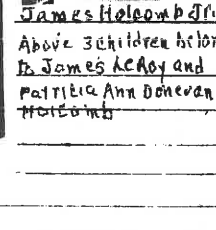 James Holcomb Jr.
Above 3 children belon
to James LeRoy and
Patricia Ann Donevan
Holcomb